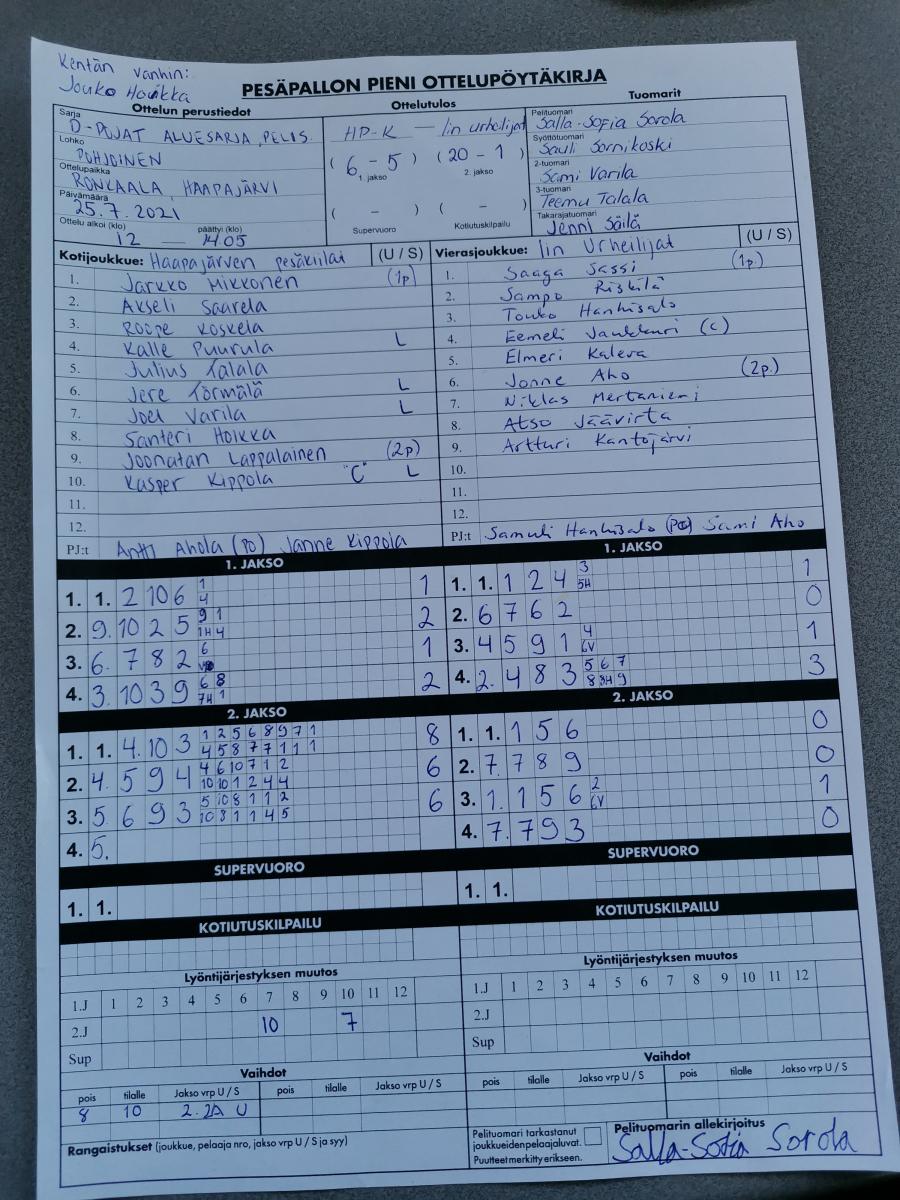 Kentän vanhin:
Jouko Hoikka
PESÄPALLON PIENI OTTELUPÖYTÄKIRJA
Ottelun perustiedot Ottelutulos Tuomarit
Sarja
D-POJAT ALUESARJA, PELIS.
Lohko
POHJOINEN
Ottelupaikka
RONKAALA, HAAPAJÄRVI
Päivämäärä
25.7.2021
Ottelu alkoi (klo) päättyi (klo)
12 — 14.05
HP-K — Iin urheilijat
( 6 - 5 ) ( 20 - 1 )
1. jakso 2. jakso
( - ) ( - )
Supervuoro Kotiutuskilpailu
Pelituomari
Salla-Sofia Sorola
Syöttötuomari
Sauli Sornikoski
2-tuomari
Sami Varila
3-tuomari
Teemu Talala
Takarajatuomari
Jenni Säilä
Kotijoukkue: Haapajärven pesäkiilat (U / S)
1. Jarkko Mikkonen (1p)
2. Akseli Saarela
3. Roope Koskela
4. Kalle Puurula L
5. Julius Talala
6. Jere Törmälä L
7. Joel Varila L
8. Santeri Hoikka
9. Joonatan Lappalainen (2p)
10. Kasper Kippola "C" L
11.
12.
PJ:t Antti Ahola (PO) Janne Kippola
Vierasjoukkue: Iin Urheilijat (U / S)
1. Saaga Sassi (1p.)
2. Sampo Riskilä
3. Touko Hanhisalo
4. Eemeli Vaukkuri (c)
5. Elmeri Kaleva
6. Jonne Aho (2p.)
7. Niklas Mertaniemi
8. Atso Jäävirta
9. Artturi Kantojärvi
10.
11.
12.
PJ:t Samuli Hanhisalo (PO) Sami Aho
1. JAKSO
1. 1. 2 10 6 1 1
4
2. 9. 10 2 5 9 1 2
1H 4
3. 6. 7 8 2 6 1
4. 3. 10 3 9 6 8 2
7H 1
2. JAKSO
1. 1. 4. 10 3 1 2 5 6 8 9 7 1 8
4 5 8 7 7 1 1 1
2. 4. 5 9 4 4 6 10 7 1 2 6
10 10 1 2 4 4
3. 5. 6 9 3 5 10 8 1 1 2 6
10 3 1 1 4 5
4. 5.
SUPERVUORO
1. 1.
KOTIUTUSKILPAILU
1. JAKSO
1. 1. 1 2 4 3 1
5H
2. 6 7 6 2 0
3. 4 5 9 1 4 1
6V
4. 2. 4 8 3 5 6 7 3
8 8H 9
2. JAKSO
1. 1. 1 5 6 0
2. 7. 7 8 9 0
3. 1. 1 5 6 2 1
6V
4. 7. 7 9 3 0
SUPERVUORO
1. 1.
KOTIUTUSKILPAILU
Lyöntijärjestyksen muutos
1.J 1 2 3 4 5 6 7 8 9 10 11 12
2.J 10 7
Sup
Vaihdot
pois tilalle Jakso vrp U / S pois tilalle Jakso vrp U / S
8 10 2. 2A U
Lyöntijärjestyksen muutos
1.J 1 2 3 4 5 6 7 8 9 10 11 12
2.J
Sup
Vaihdot
pois tilalle Jakso vrp U / S pois tilalle Jakso vrp U / S
Rangaistukset (joukkue, pelaaja nro, jakso vrp U / S ja syy)
Pelituomari tarkastanut
joukkueiden pelaajaluvat.
Puutteet merkitty erikseen.
Pelituomarin allekirjoitus
Salla-Sofia Sorola